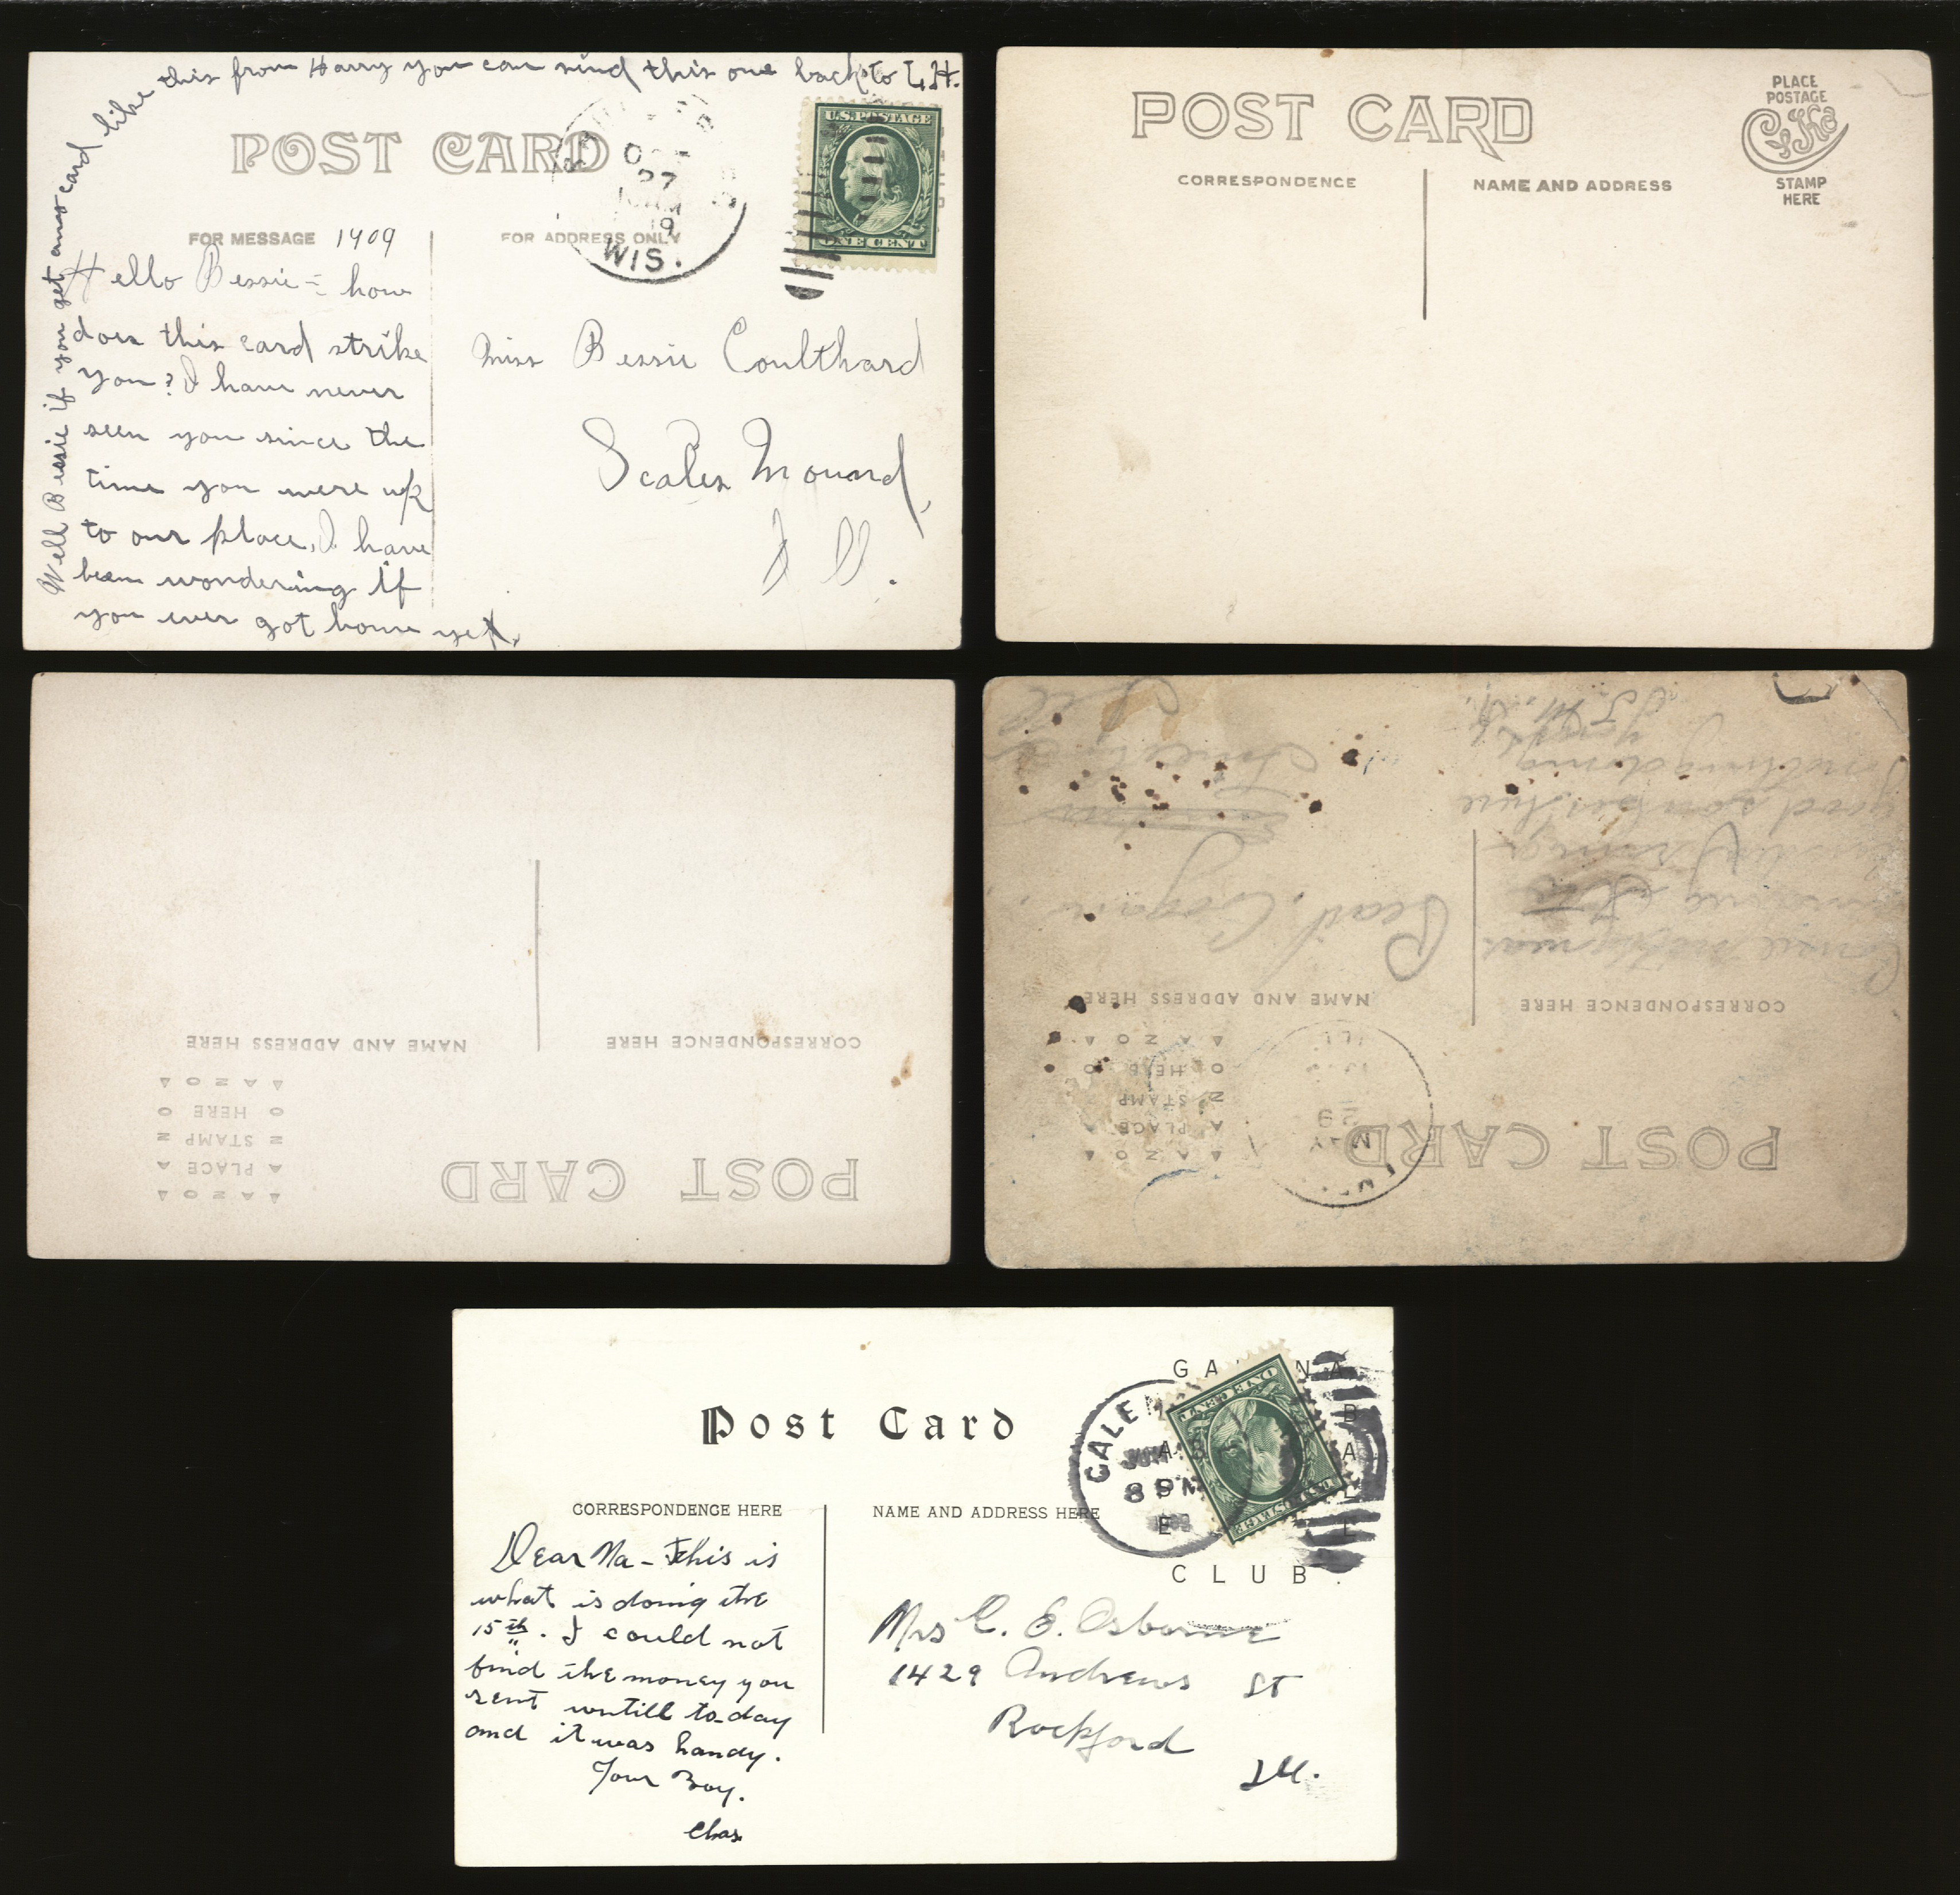 Well Bessie if you get any card like this from Harry you can send this one back to L.H.
POST CARD
FOR MESSAGE 1909
FOR ADDRESS ONLY
27
19
WIS.
U.S. POSTAGE
ONE CENT
Hello Bessie = how
does this card strike
you? I have never
seen you since the
time you were up
to our place, I have
been wondering if
you ever got home yet.
Miss Bessie Coulthard
Scales Mound,
Ill.
POST CARD
CORRESPONDENCE
NAME AND ADDRESS
PLACE
POSTAGE
STAMP
HERE
POST CARD
CORRESPONDENCE HERE
NAME AND ADDRESS HERE
AZO
PLACE
STAMP
HERE
AZO
POST CARD
CORRESPONDENCE HERE
NAME AND ADDRESS HERE
AZO
PLACE
STAMP
HERE
AZO
MAY
29
ILL
good
nothing doing
Post Card
CORRESPONDENCE HERE
NAME AND ADDRESS HERE
GALENA
BALL
CLUB.
GALENA
8 PM
ONE CENT
Dear Ma - This is
what is doing the
15th. I could not
find the money you
sent untill to-day
and it was handy.
Your Boy.
Chas
Mrs C. E. Osborne
1429 Andrews St
Rockford
Ill.